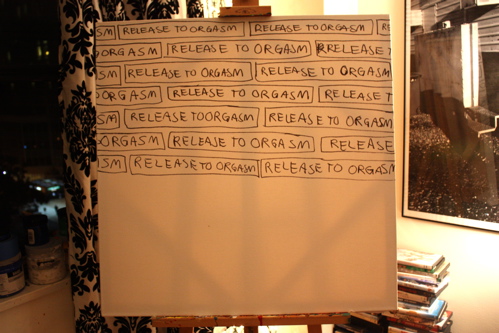 SM RELEASE TO ORGASM RELEASE TO ORGASM RE
ORGASM RELEASE TO ORGASM RRELEASE T
SM RELEASE TO ORGASM RELEASE TO ORGASM
ORGASM RELEASE TO ORGASM RELEASE T
SM RELEASE TO ORGASM RELEASE TO ORGASM
ORGASM RELEASE TO ORGASM RELEASE
SM RELEASE TO ORGASM RELEASE TO ORGASM